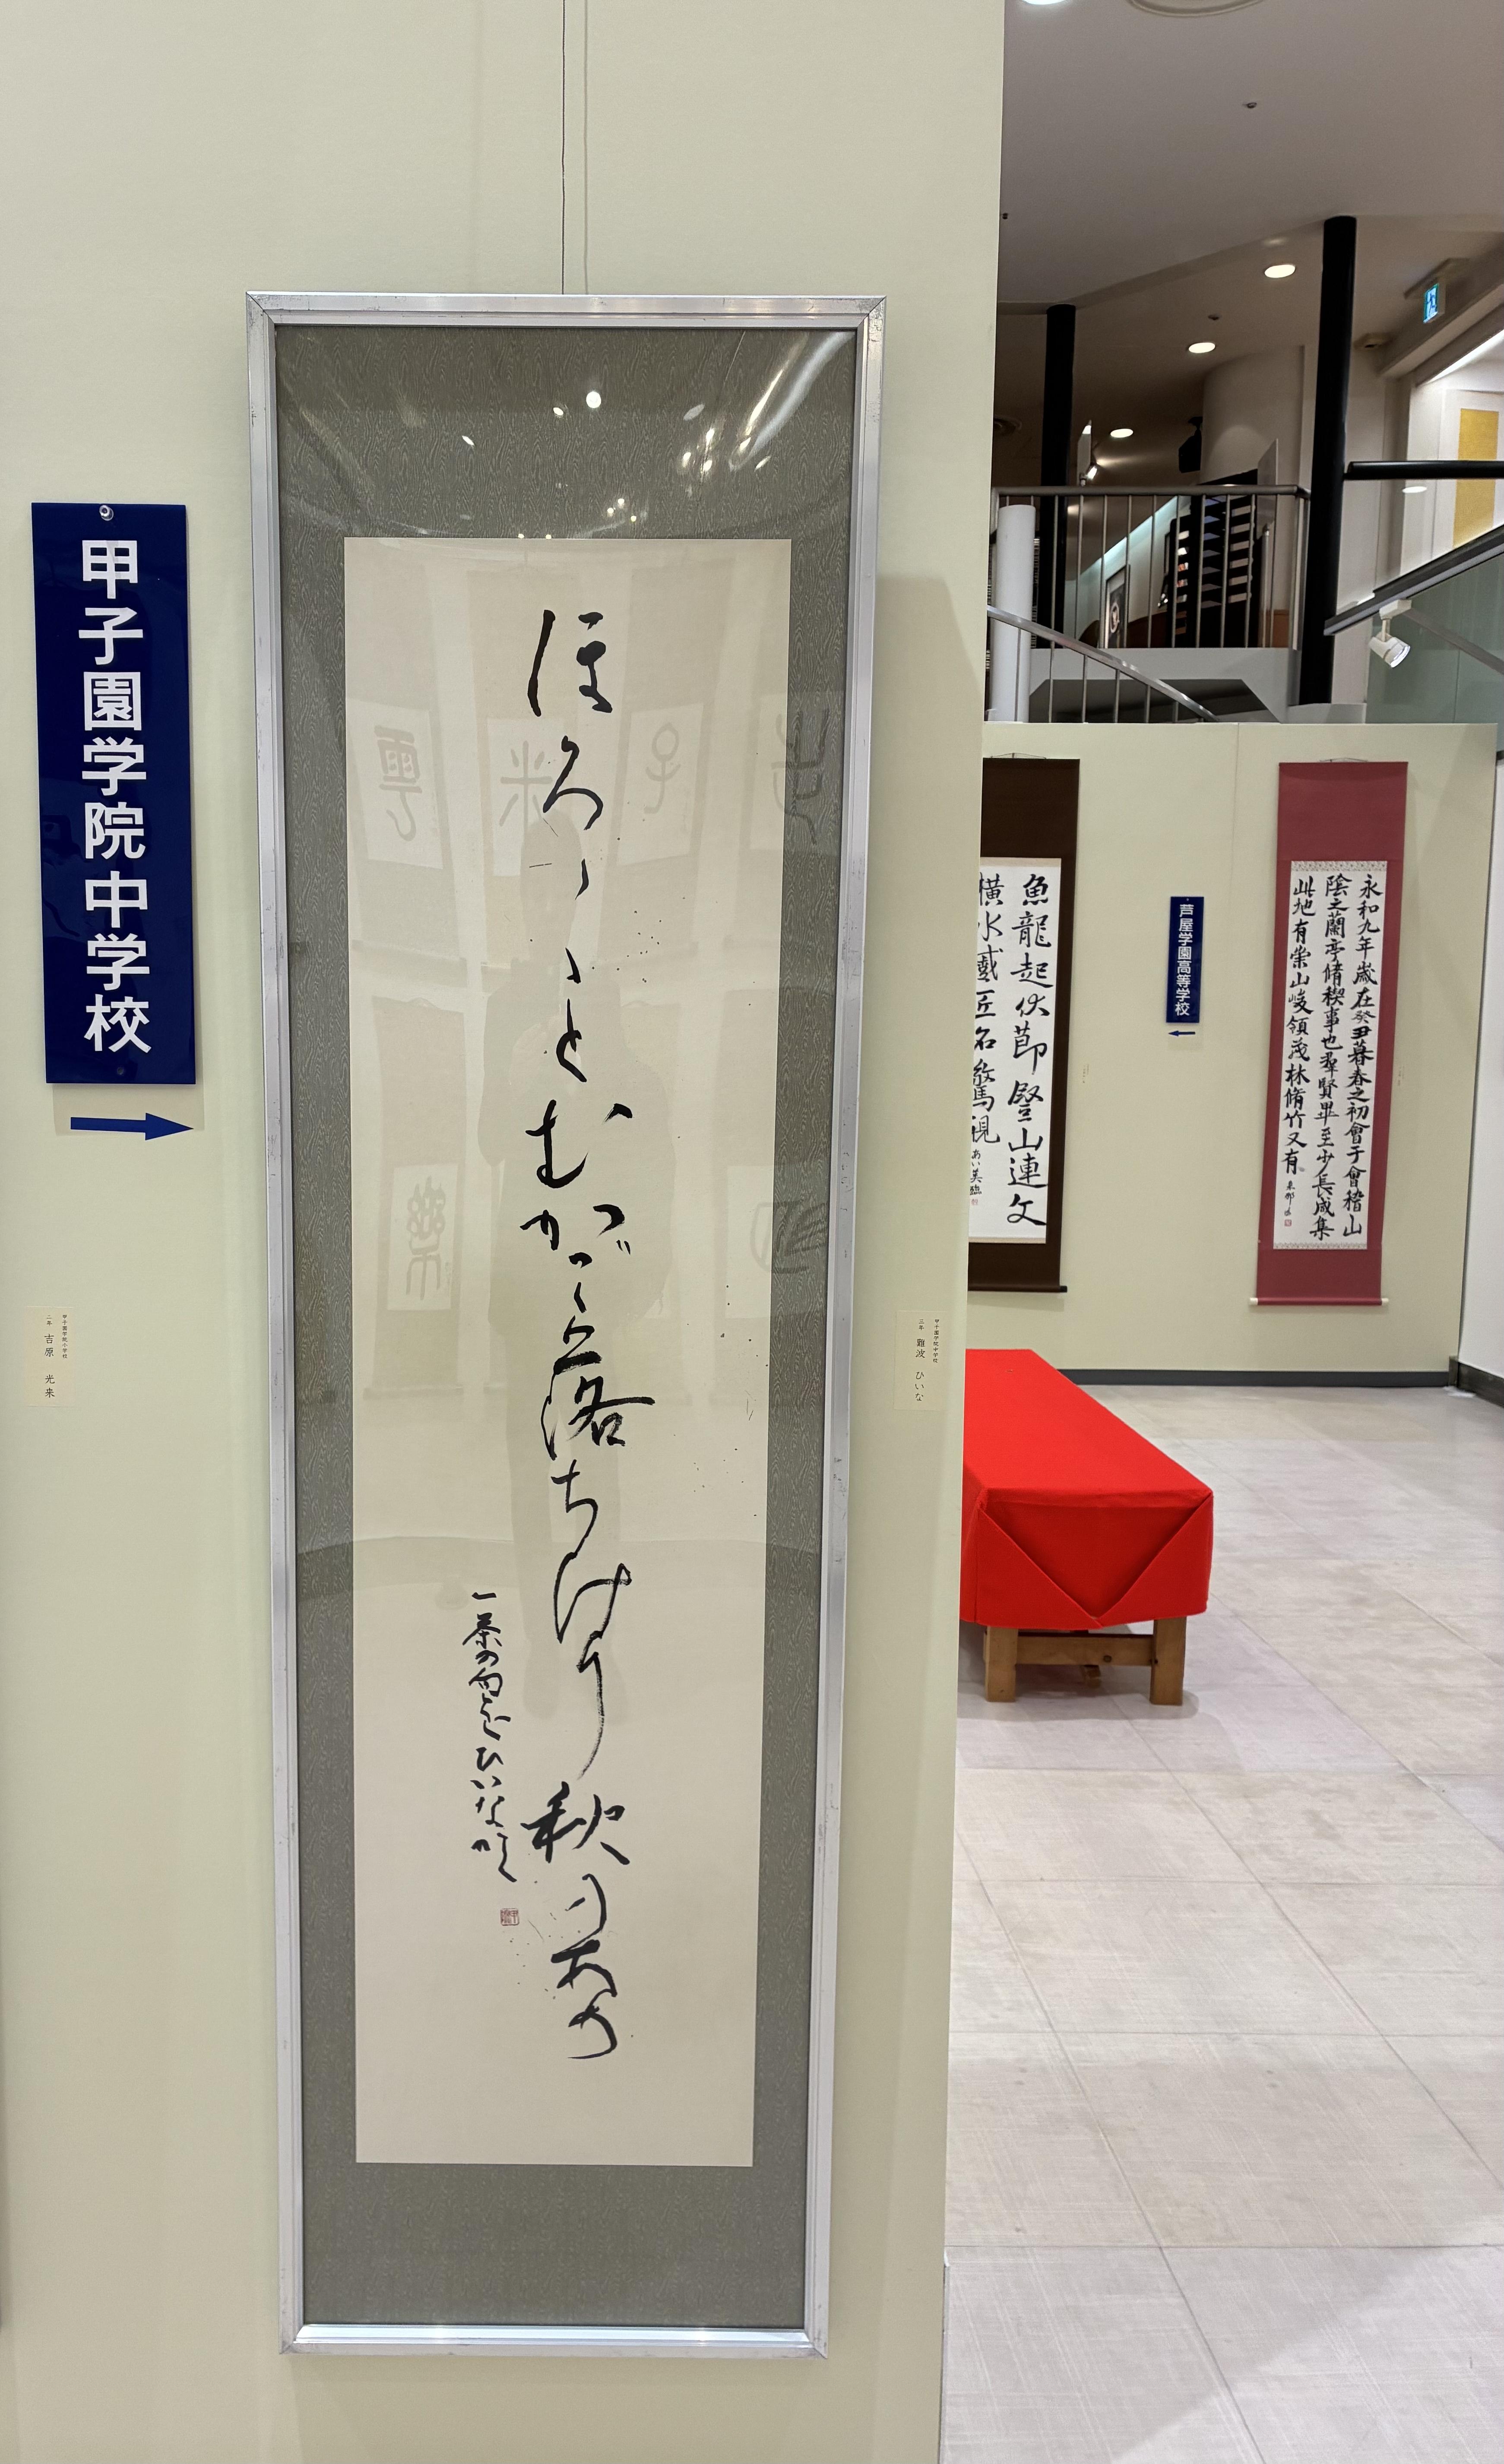 甲子園学院中学校
ほろゝゝとむかご落ちけり秋のあめ
一茶の句を ひいなかく
甲子園学院小学校
二年 吉原 光来
甲子園学院中学校
三年 難波 ひいな
魚龍起伏莭豎山連文
芦屋学園高等学校
永和九年歳在癸丑暮春之初會于會稽山
陰之蘭亭脩禊事也羣賢畢至少長咸集
此地有崇山峻領茂林脩竹又有